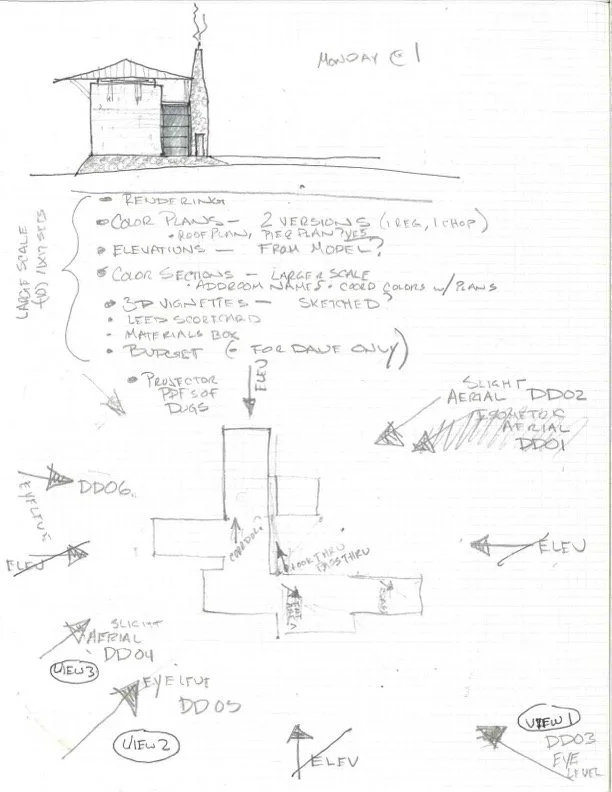 MONDAY @ 1
RENDERING
COLOR PLANS - 2 VERSIONS (1 REG, 1 CHOP)
• ROOF PLAN, PIER PLAN? YES
ELEVATIONS - FROM MODEL?
COLOR SECTIONS - LARGER SCALE
• ADD ROOM NAMES • COORD COLORS W/ PLANS
3D VIGNETTES - SKETCHED?
LEED SCORECARD
MATERIALS BOX
BUDGET (← FOR DAVE ONLY)
PROJECTOR
PDF'S OF
DWGS
LARGE SCALE
11X17 SETS
ELEV
SLIGHT
AERIAL DD02
ISOMETRIC
AERIAL
DD01
DD06
EYE LEVEL
ELEV
ELEV
LOOK THRU
PASS THRU
SLIGHT
AERIAL
DD04
VIEW 3
EYE LEVEL
DD05
VIEW 2
ELEV
VIEW 1
DD03
EYE
LEVEL